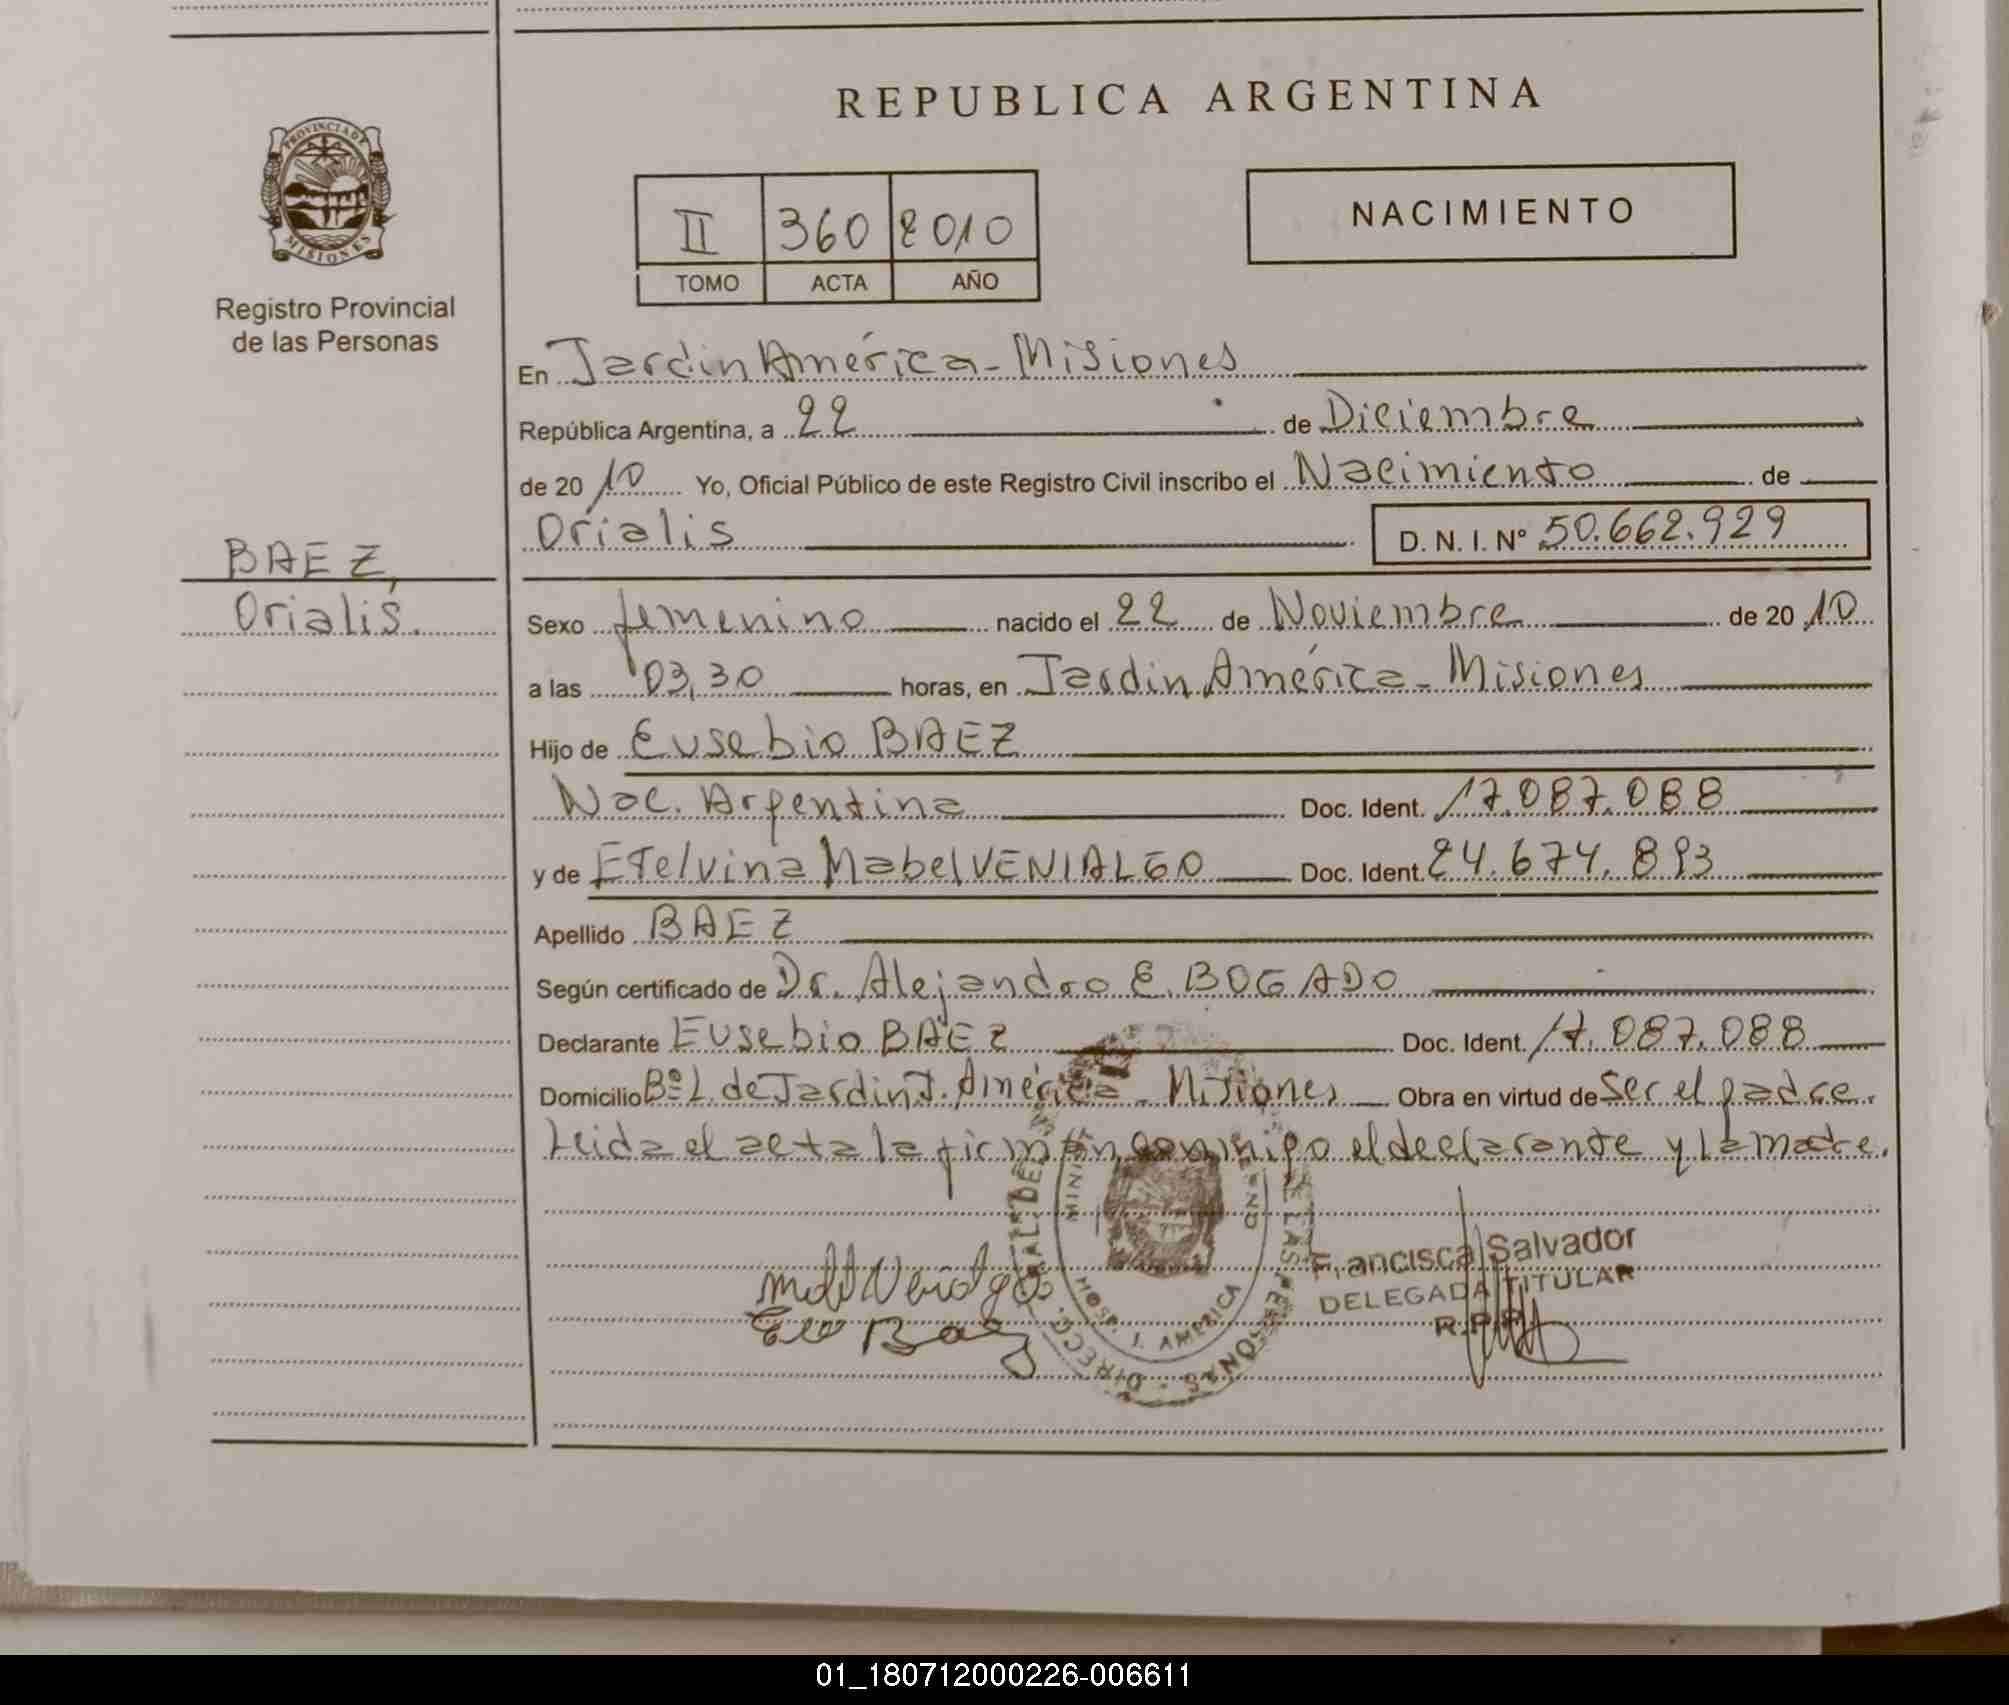 REPUBLICA ARGENTINA
PROVINCIA DE
MISIONES
Registro Provincial
de las Personas
II 360 2010
TOMO ACTA AÑO
NACIMIENTO
En Jardin América - Misiones
República Argentina, a 22 de Diciembre
de 20 10 Yo, Oficial Público de este Registro Civil inscribo el Nacimiento de
Orialis D. N. I. Nº 50.662.929
BAEZ,
Orialis.
Sexo femenino nacido el 22 de Noviembre de 20 10
a las 03,30 horas, en Jardin América - Misiones
Hijo de Eusebio BAEZ
Nac. Argentina Doc. Ident. 17.087.088
y de Etelvina Mabel VENIALGO Doc. Ident. 24.674.893
Apellido BAEZ
Según certificado de Dr. Alejandro E. BOGADO
Declarante Eusebio BAEZ Doc. Ident. 17.087.088
Domicilio Bº L. de Jardin J. América - Misiones Obra en virtud de ser el padre.
Leida el acta la firman conmigo el declarante y la madre.
HOSP. J. AMERICA
Francisca Salvador
DELEGADA TITULAR
R.P.P.
01_180712000226-006611